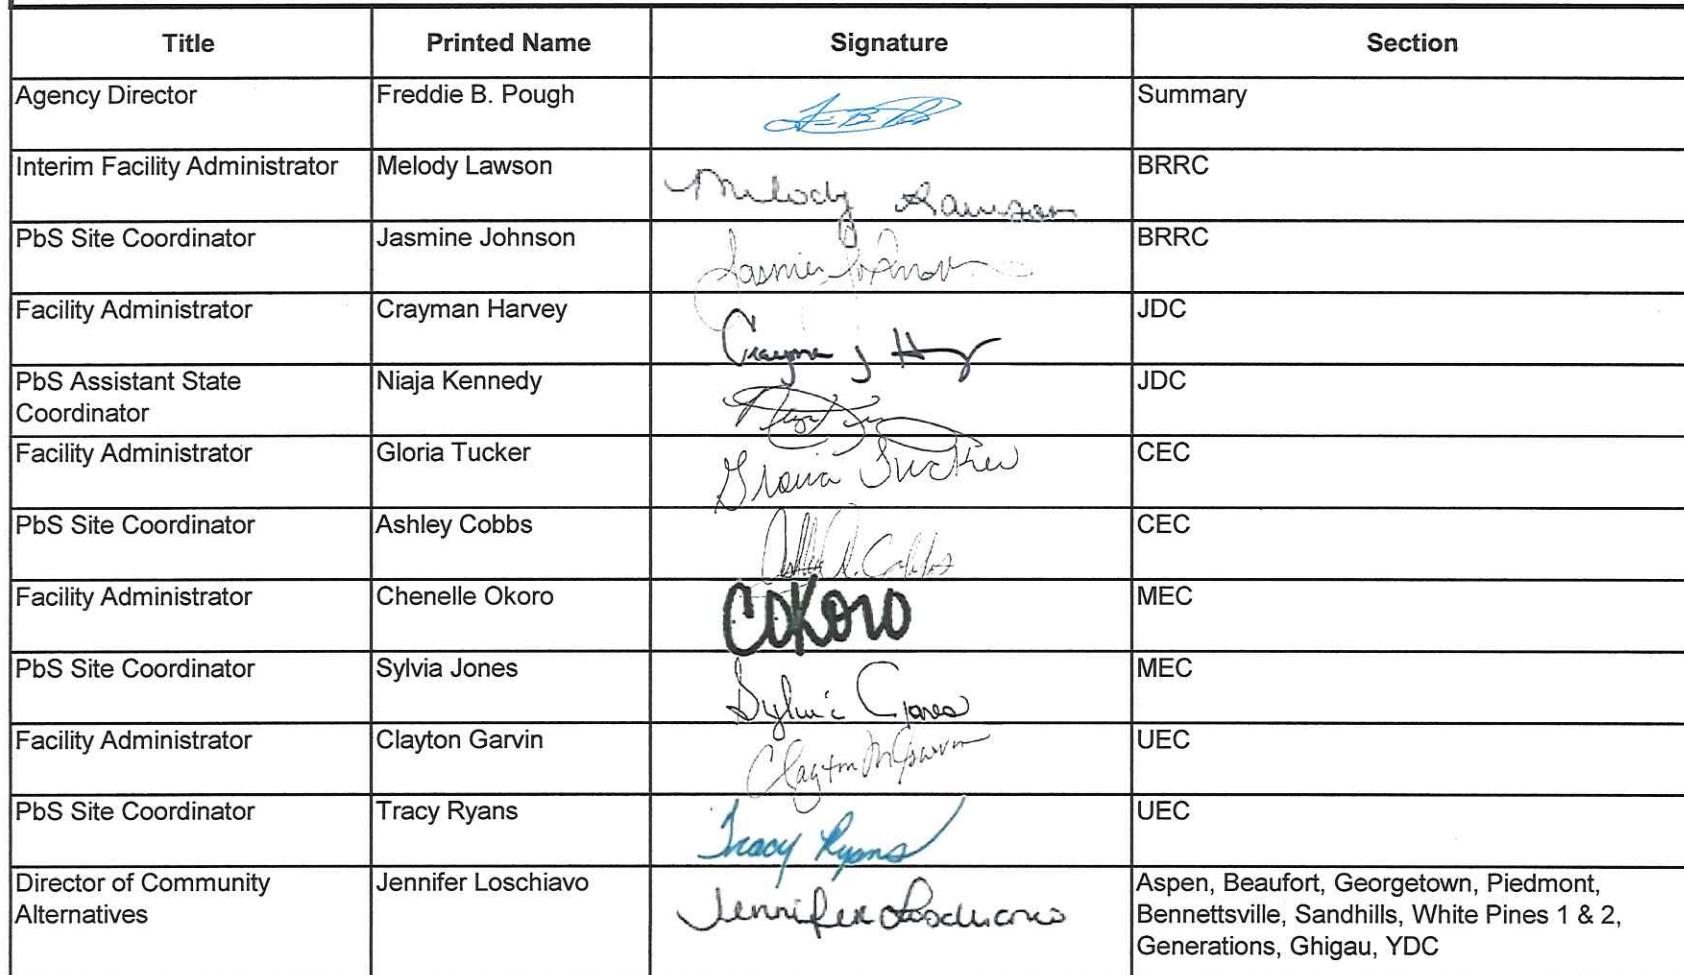 Title Printed Name Signature Section
Agency Director Freddie B. Pough Summary
Interim Facility Administrator Melody Lawson Melody Lawson BRRC
PbS Site Coordinator Jasmine Johnson Jasmine Johnson BRRC
Facility Administrator Crayman Harvey Crayman J H JDC
PbS Assistant State Niaja Kennedy JDC
Coordinator
Facility Administrator Gloria Tucker Gloria Tucker CEC
PbS Site Coordinator Ashley Cobbs Ashley A. Cobbs CEC
Facility Administrator Chenelle Okoro COKORO MEC
PbS Site Coordinator Sylvia Jones Sylvia Jones MEC
Facility Administrator Clayton Garvin Clayton M Garvin UEC
PbS Site Coordinator Tracy Ryans Tracy Ryans UEC
Director of Community Jennifer Loschiavo Jennifer Loschiavo Aspen, Beaufort, Georgetown, Piedmont,
Alternatives Bennettsville, Sandhills, White Pines 1 & 2,
Generations, Ghigau, YDC